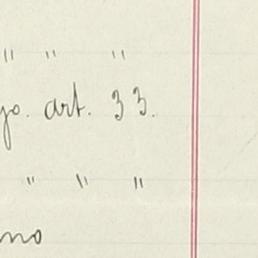 " " "
go. art. 33.
" " "
no